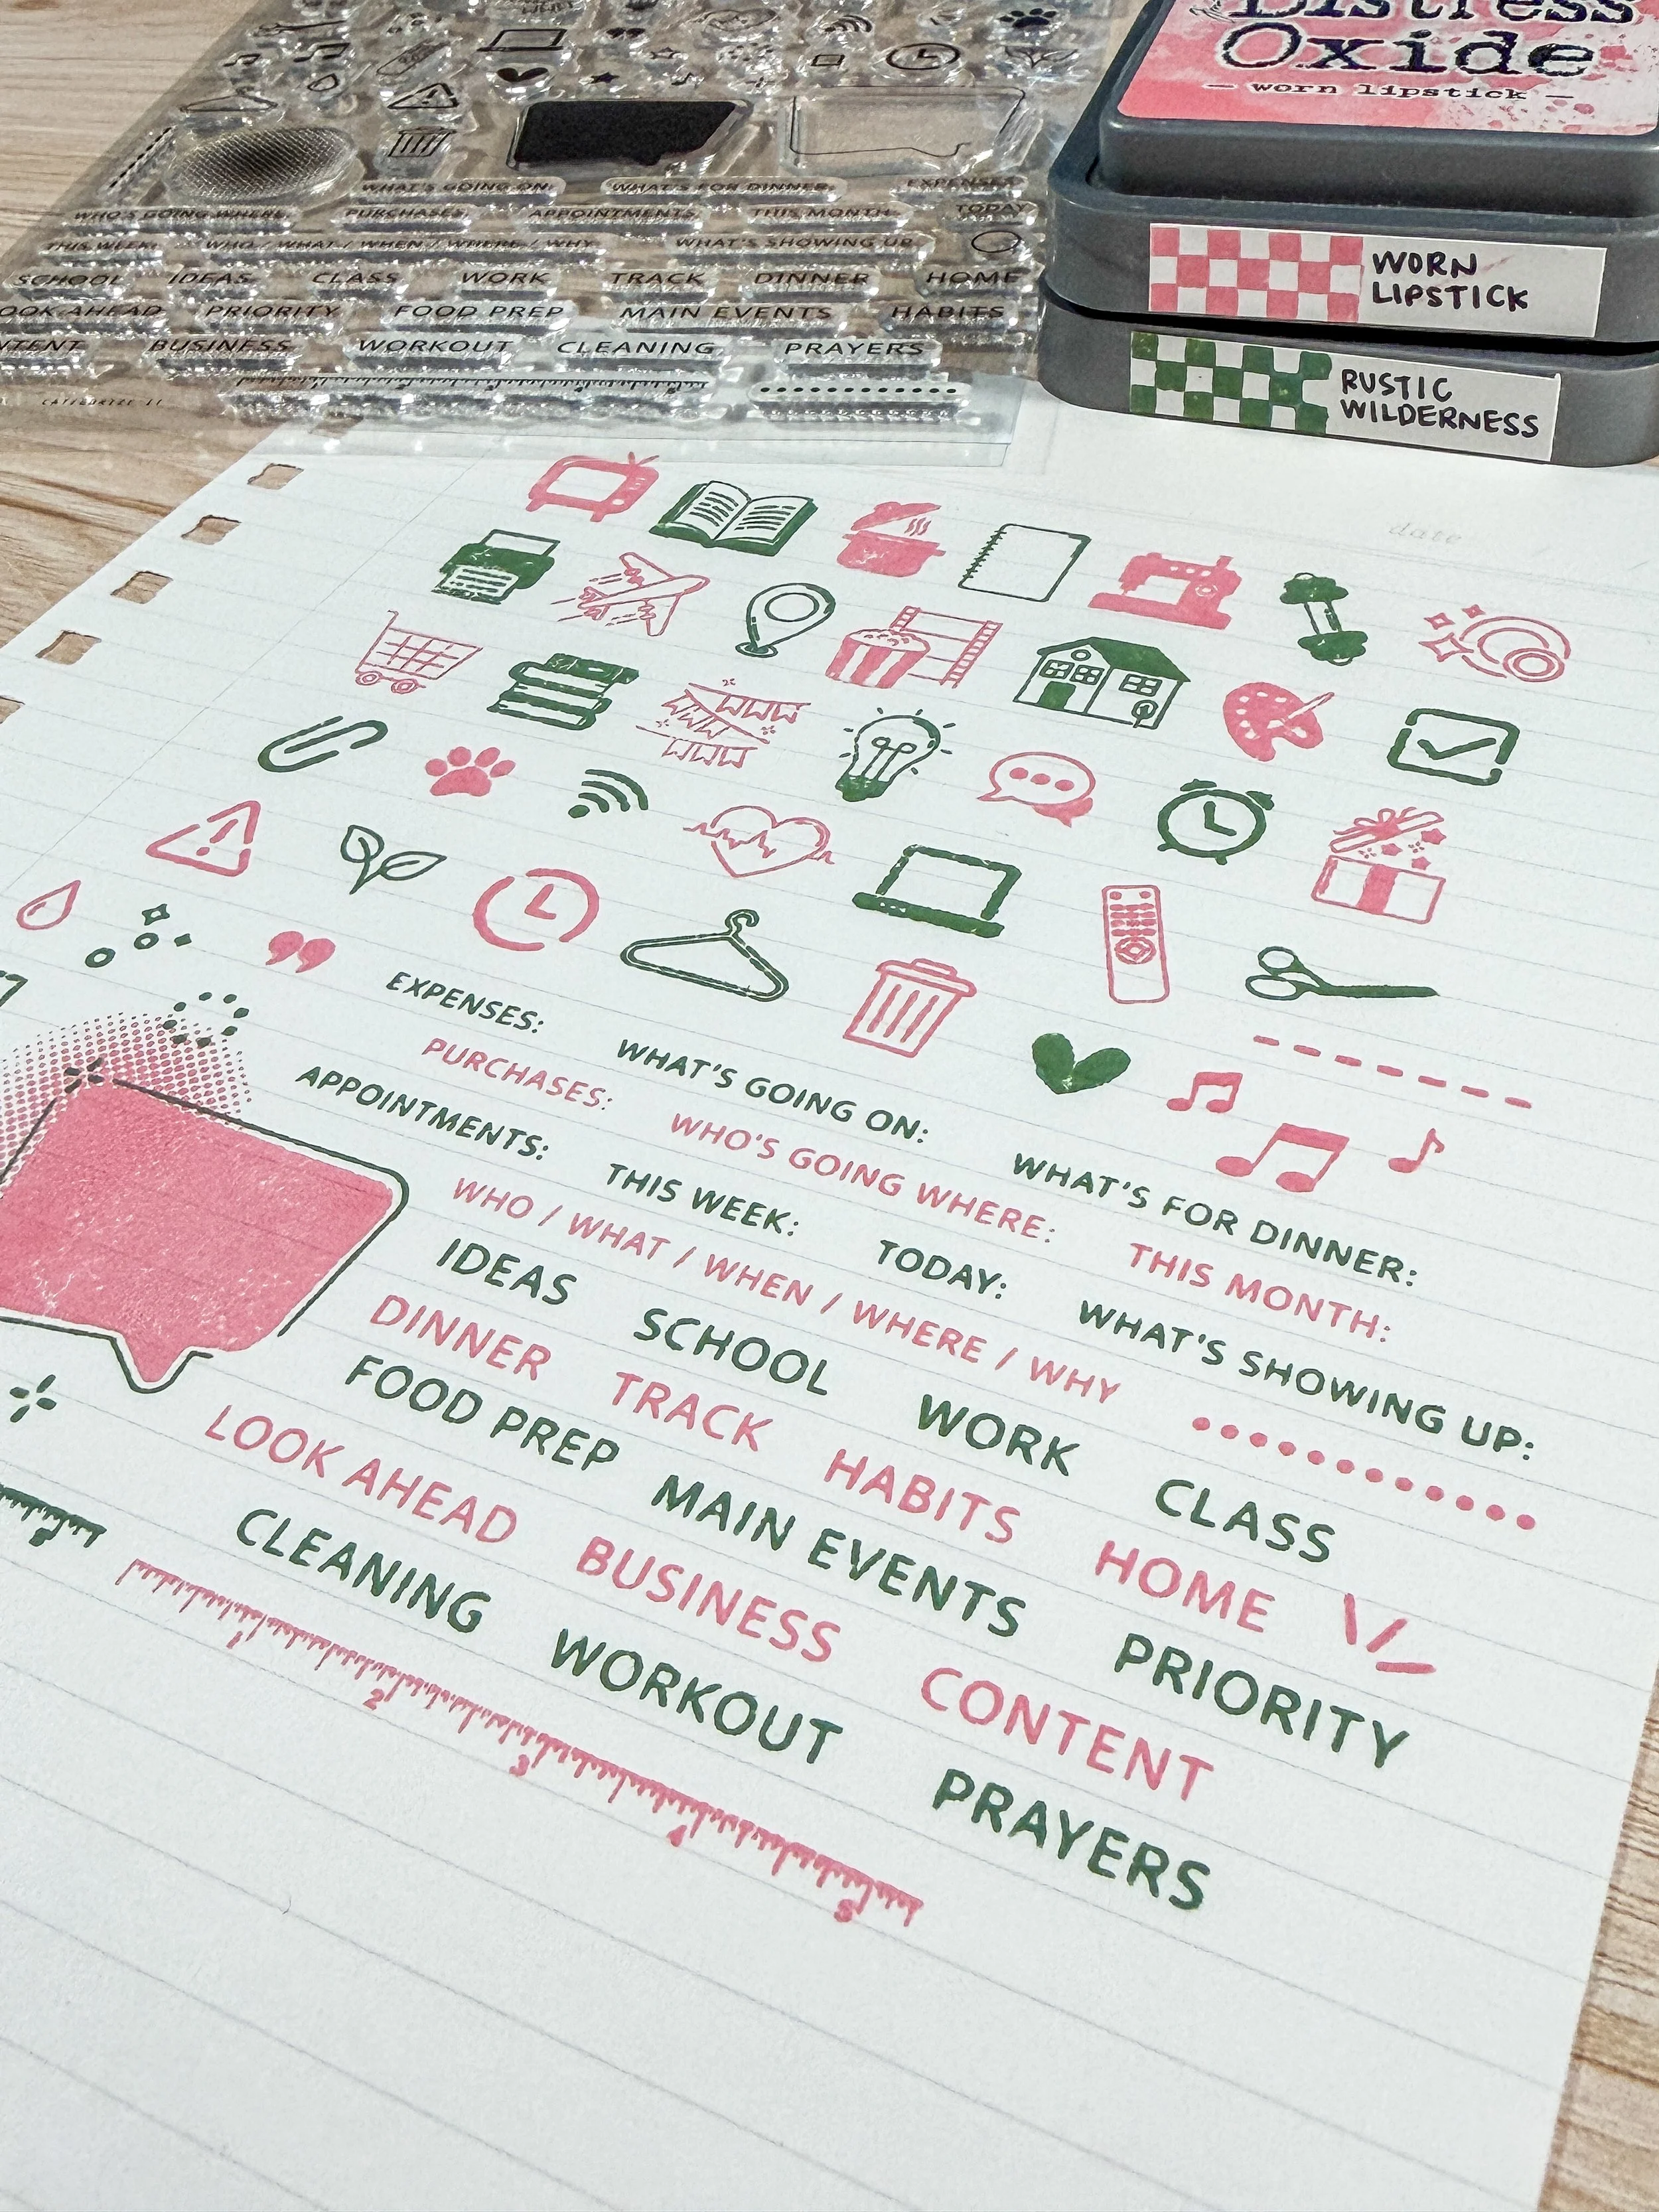 Distress
Oxide
— worn lipstick —
WORN
LIPSTICK
RUSTIC
WILDERNESS
WHAT'S GOING ON: WHAT'S FOR DINNER: EXPENSES:
WHO'S GOING WHERE: PURCHASES: APPOINTMENTS: THIS MONTH: TODAY:
THIS WEEK: WHO / WHAT / WHEN / WHERE / WHY WHAT'S SHOWING UP:
SCHOOL IDEAS CLASS WORK TRACK DINNER HOME
OOK AHEAD PRIORITY FOOD PREP MAIN EVENTS HABITS
NTENT BUSINESS WORKOUT CLEANING PRAYERS
date
EXPENSES: WHAT'S GOING ON: WHAT'S FOR DINNER:
PURCHASES: WHO'S GOING WHERE: THIS MONTH:
APPOINTMENTS: THIS WEEK: TODAY: WHAT'S SHOWING UP:
WHO / WHAT / WHEN / WHERE / WHY
IDEAS SCHOOL WORK CLASS
DINNER TRACK HABITS HOME
FOOD PREP MAIN EVENTS PRIORITY
LOOK AHEAD BUSINESS CONTENT
CLEANING WORKOUT PRAYERS
1 2 3 4 5